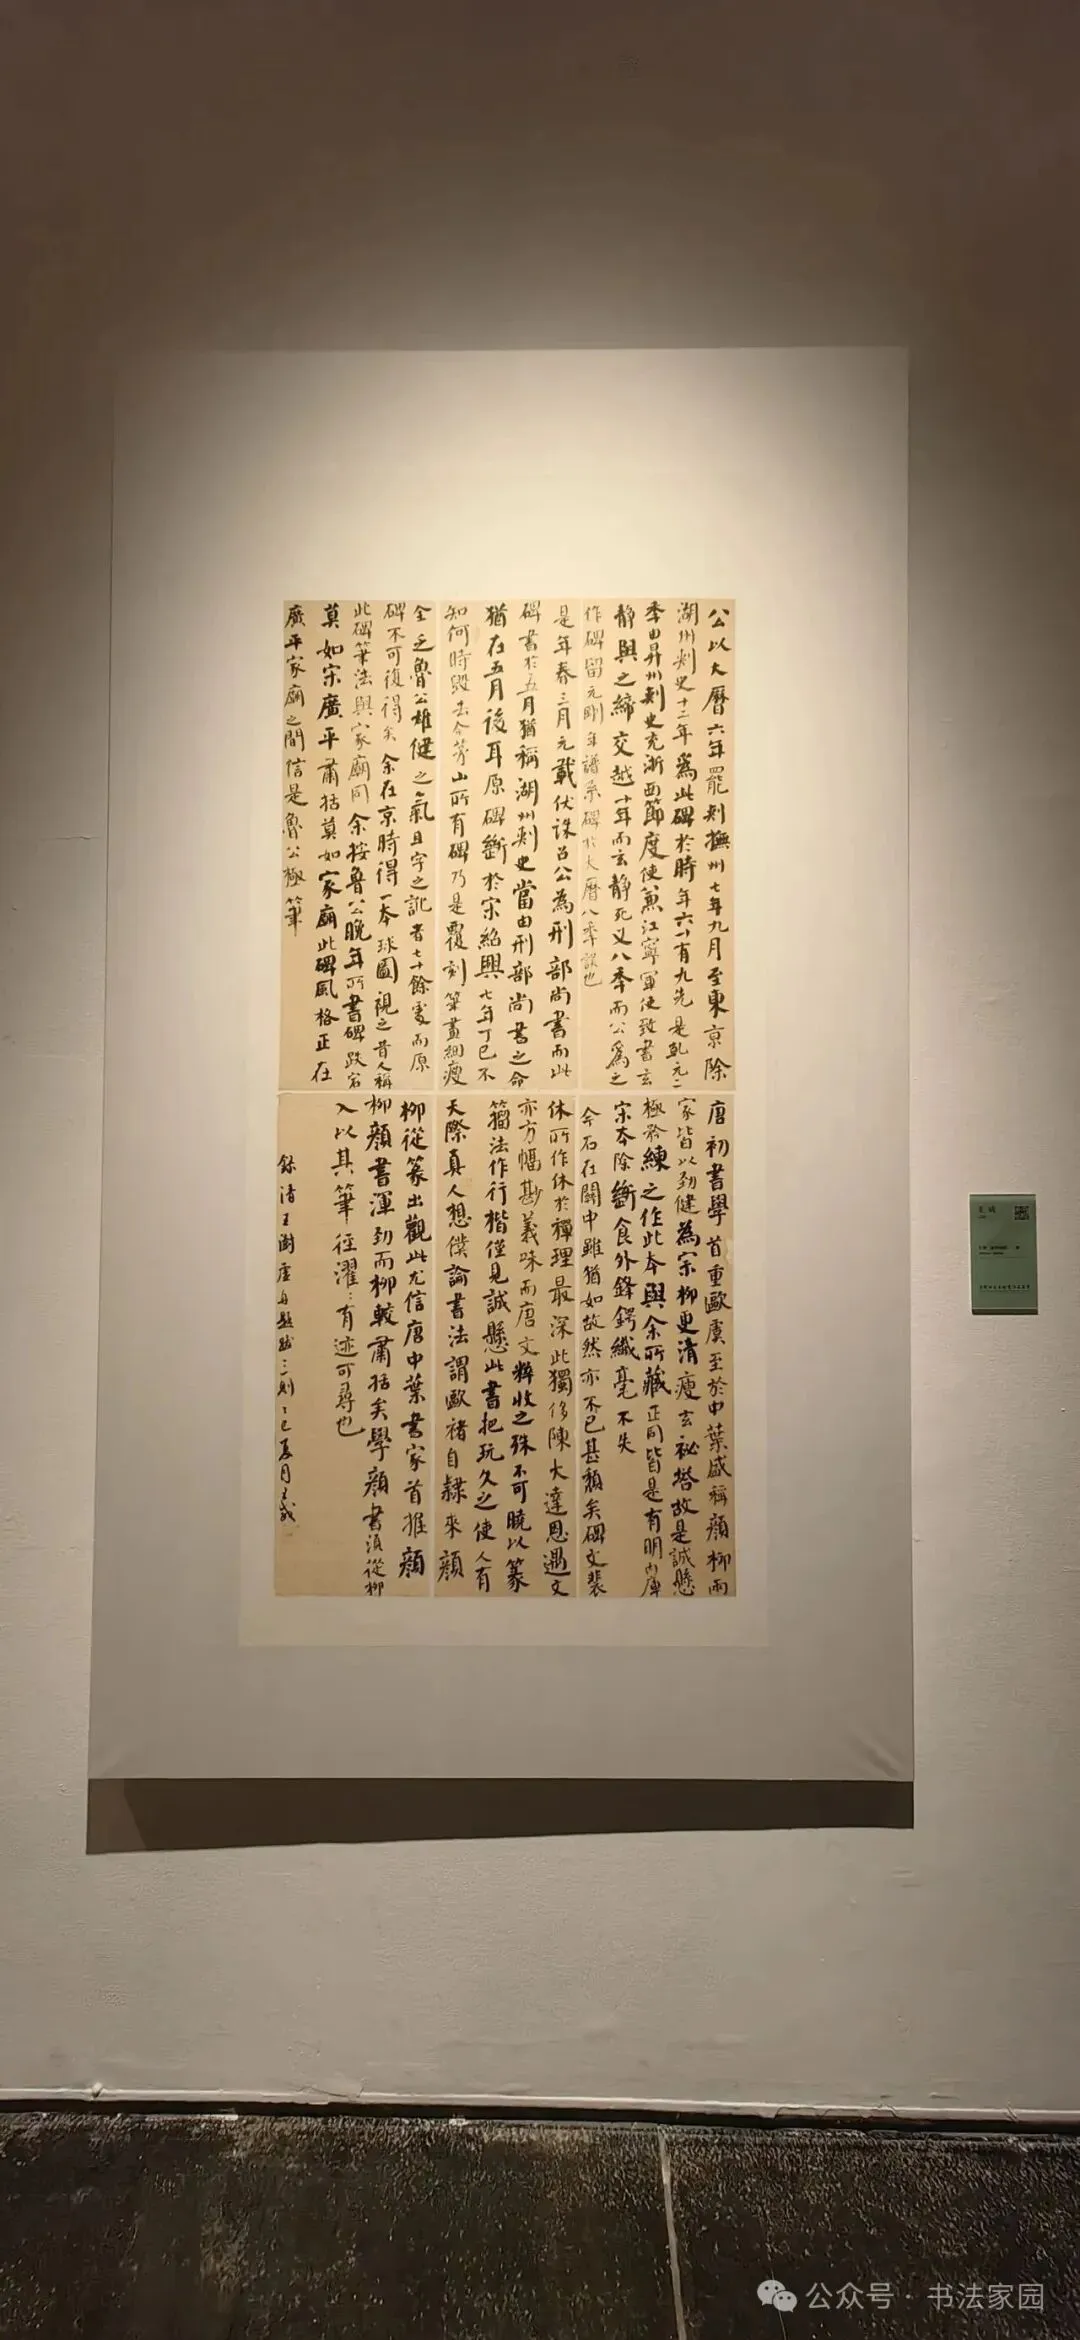 公以大曆六年罷刺撫州七年九月至東京除
湖州刺史十二年為此碑於時年六十有九先是乾元二
季由昇州刺史充浙西節度使兼江寧軍使致書玄
靜與之締交越十年而玄靜死又八季而公為之
作碑留元剛年譜系碑於大曆八季誤也
是年春三月元載伏誅召公為刑部尚書而此
碑書於五月猶稱湖州刺史當由刑部尚書之命
猶在五月後耳原碑斷於宋紹興七年丁巳不
知何時毀去今茅山所有碑乃是覆刻筆畫細瘦
全乏魯公雄健之氣且字之訛者七十餘處而原
碑不可復得矣余在京時得一本球圖視之昔人稱
此碑筆法與家廟同余按魯公晚年所書碑跌宕
莫如宋廣平肅括莫如家廟此碑風格正在
廣平家廟之間信是魯公極筆
唐初書學首重歐虞至於中葉盛稱顏柳兩
家皆以勁健為宗柳更清瘦玄秘塔故是誠懸
極矜練之作此本與余所藏正同皆是有明內庫
宋本除斷食外鋒鍔纖毫不失
今石在關中雖猶如故然亦不已甚頹矣碑文裴
休所作休於禪理最深此獨侈陳大達恩遇文
亦方幅尠義味而唐文粹收之殊不可曉以篆
籀法作行楷僅見誠懸此書把玩久之使人有
天際真人想僕論書法謂歐褚自隸來顏
柳從篆出觀此尤信唐中葉書家首推顏
柳顏書渾勁而柳較肅括矣學顏書須從柳
入以其筆徑濯:有迹可尋也
錄清王澍虛舟題跋二則乙巳夏月王斌
公众号·书法家园